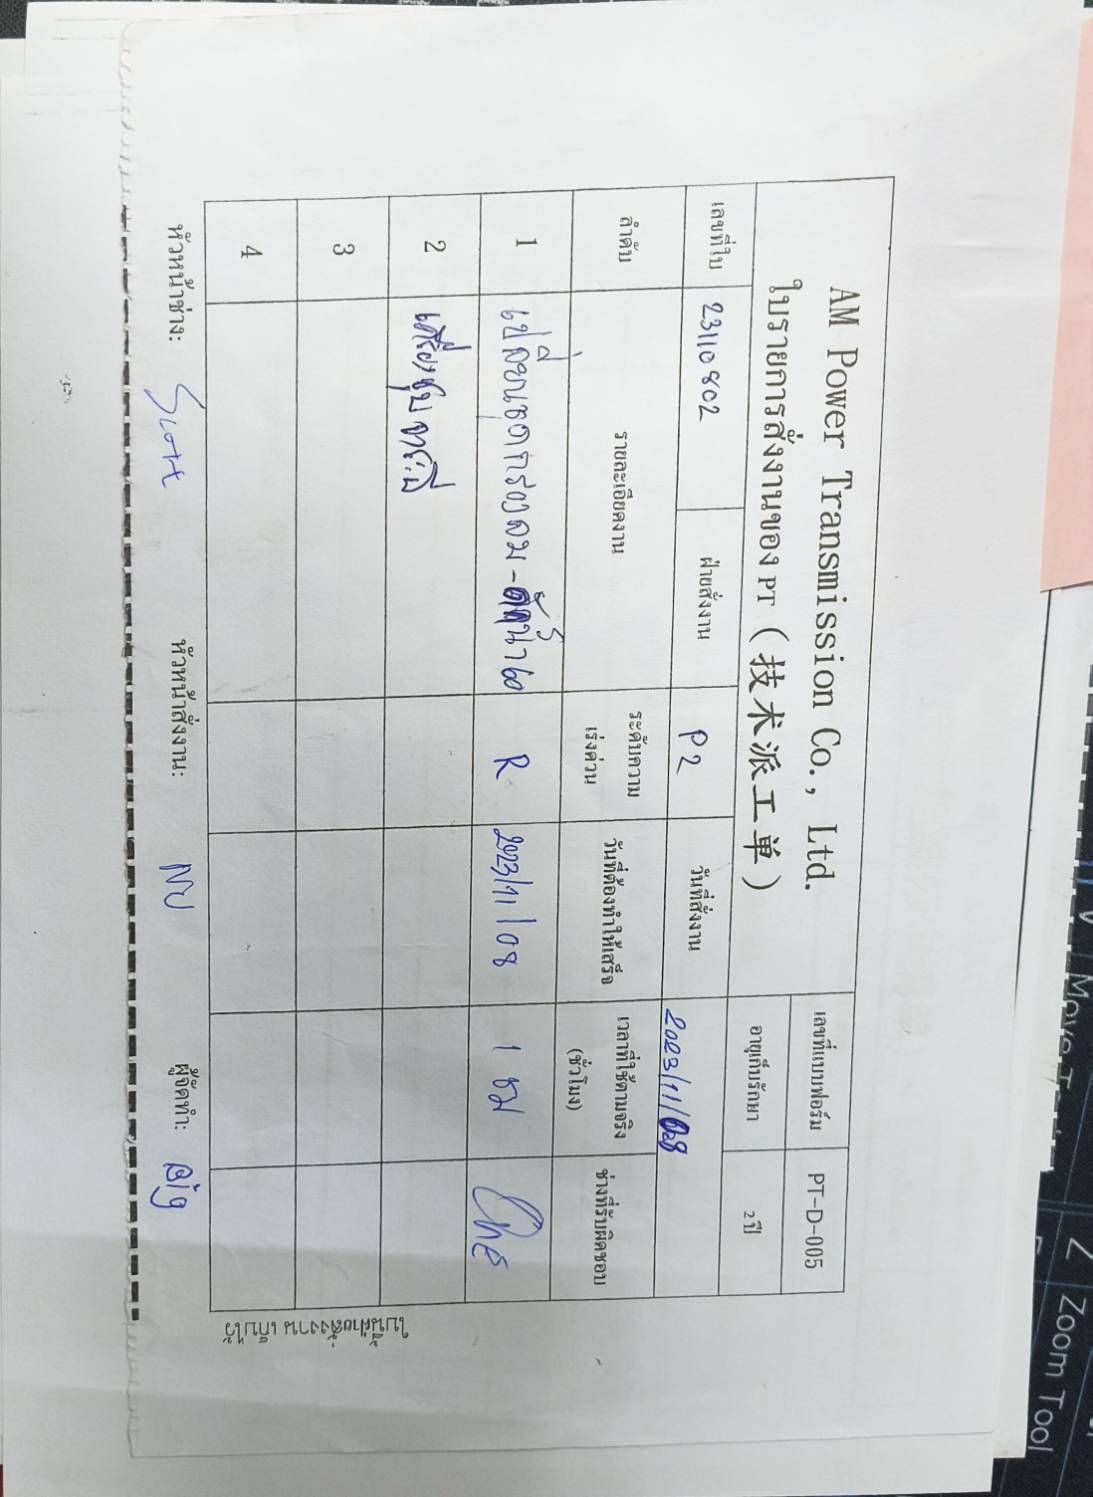 Move
Z Zoom Tool
AM Power Transmission Co., Ltd.
ใบรายการสั่งงานของ PT (技术派工单)
เลขที่แบบฟอร์ม PT-D-005
อายุเก็บรักษา 2 ปี
เลขที่ใบ 23110802 ฝ่ายสั่งงาน P2 วันที่สั่งงาน 2023/11/08
ลำดับ รายละเอียดงาน ระดับความเร่งด่วน วันที่ต้องทำให้เสร็จ เวลาที่ใช้ตามจริง (ชั่วโมง) ช่างที่รับผิดชอบ
1 เปลี่ยนชุดกรองลม-ดักน้ำ 60 R 2023/11/08 1 ชม One
2 เครื่องชุบจาระบี
3
4
หัวหน้าช่าง: Scott หัวหน้าสั่งงาน: NU ผู้จัดทำ: Big
ใบนี้ฝ่ายสั่งงานเก็บไว้